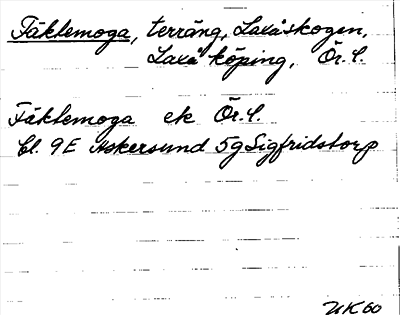 Fäktemoga, terräng, Laxåskogen,
Laxå köping, Ör. l.
Fäktemoga ek Ör. l.
bl. 9E Askersund 5g Sigfridstorp
UK 60